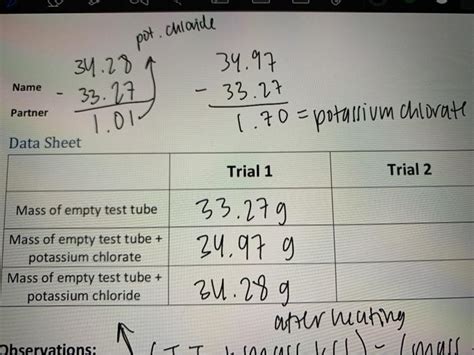 pot. chloride
34.28
Name - 33.27
Partner 1.01
34.97
- 33.27
1.70 = potassium chlorate
Data Sheet
Trial 1 Trial 2
Mass of empty test tube 33.27g
Mass of empty test tube +
potassium chlorate 34.97 g
Mass of empty test tube +
potassium chloride 34.28 g
after heating
Observations: